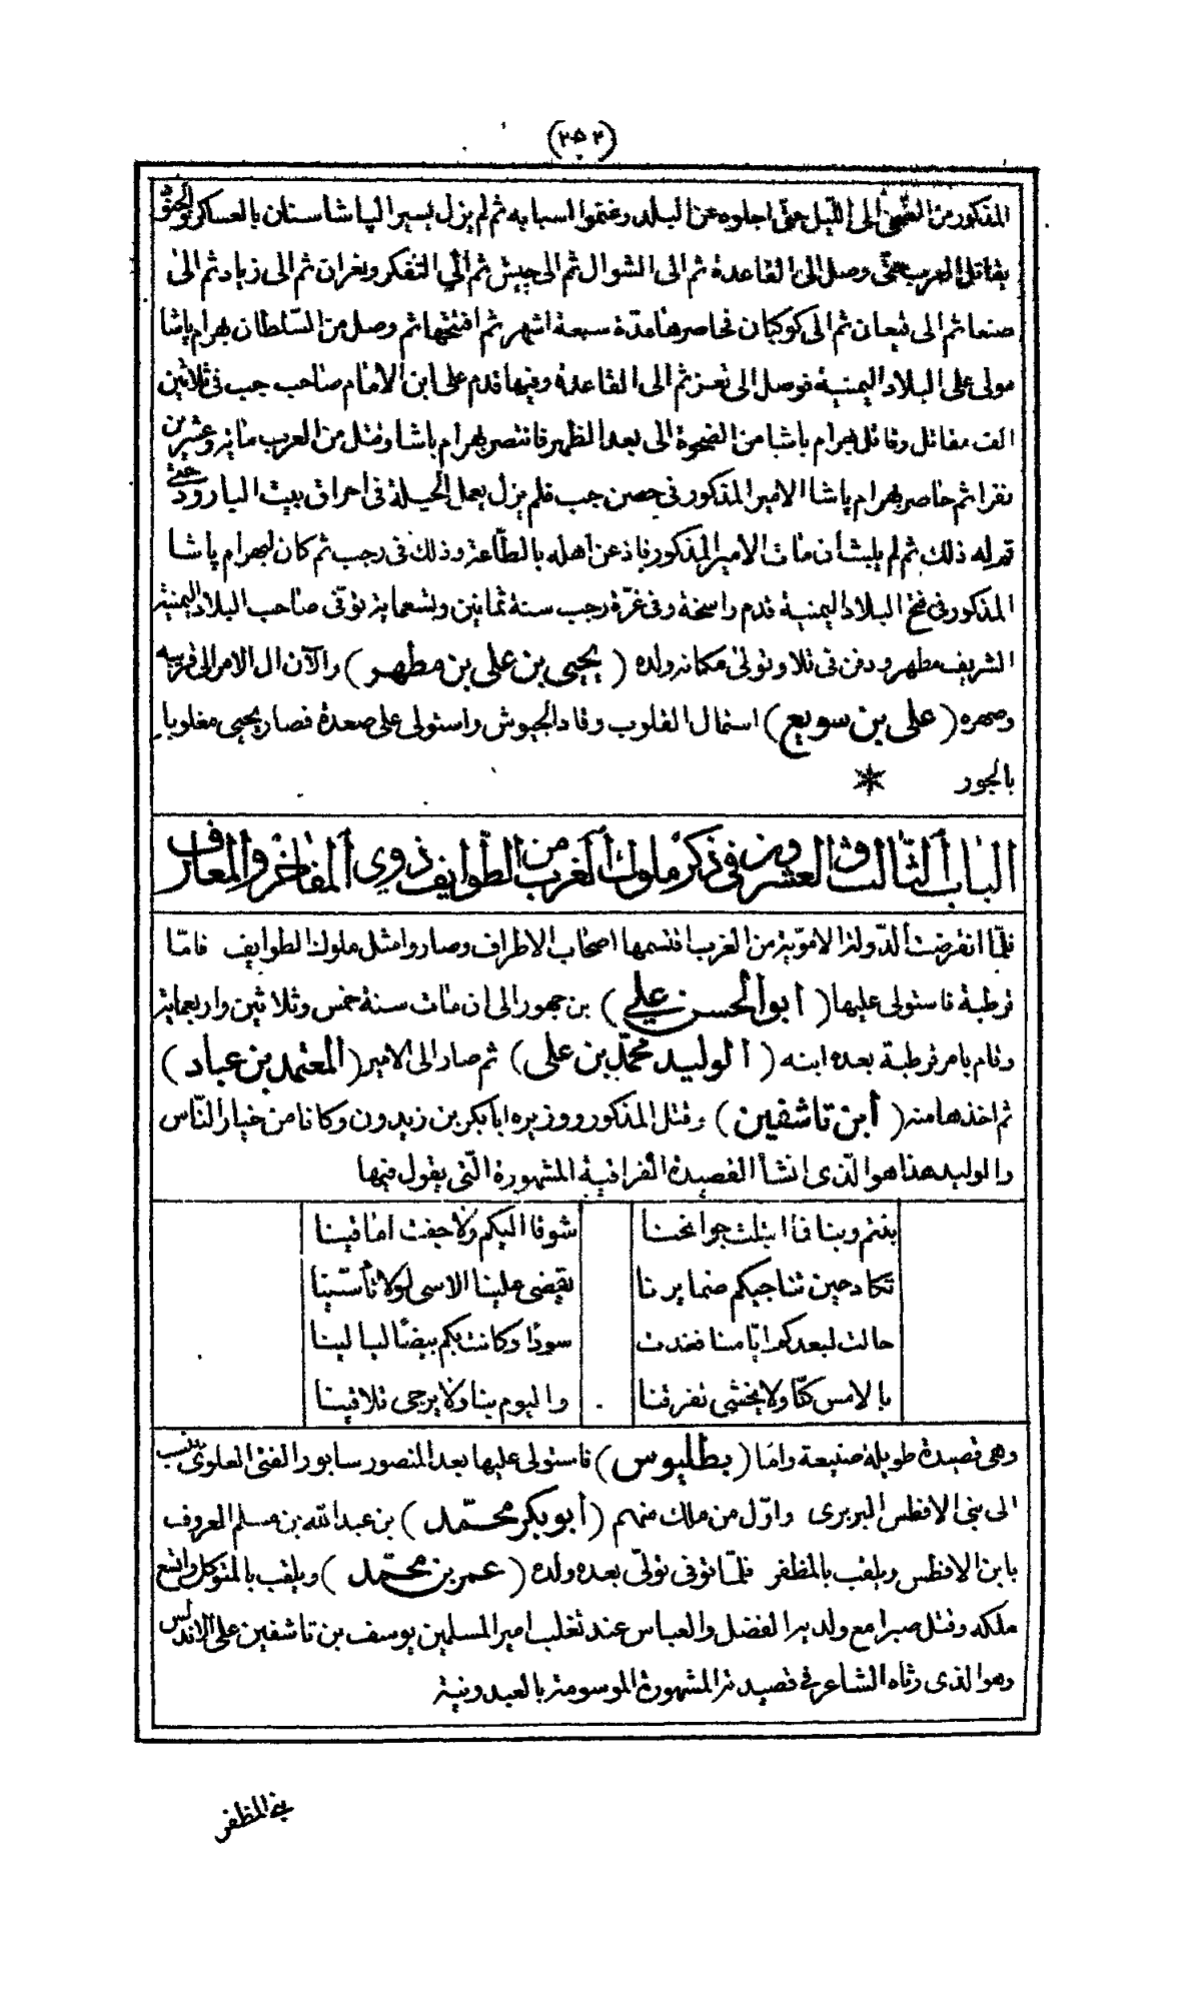 (٢٥٢)
المذكور من الضحى الى الليل حتى اجلوه عن البلد وغنموا اسبابه ثم لم يزل يسير الپاشا سنان بالعساكر والجنود
يقاتل العرب حتى وصل الى القاعدة ثم الى الشوال ثم الى جيش ثم الى التفكر ونغران ثم الى زياد ثم الى
صنعا ثم الى نبعان ثم الى كوكبان فحاصرها مدّة سبعة اشهر ثم افتتحها ثم وصل من السّلطان بهرام پاشا
مولى على البلاد اليمنية فوصل الى تعز ثم الى القاعدة وفيها قدم على ابن الامام صاحب جب فى ثلاثين
الف مقاتل وقاتل بهرام پاشا من الضحوة الى بعد الظهر فانتصر بهرام پاشا وقتل من العرب مائة وعشرين
نفرا ثم حاصر بهرام پاشا الامير المذكور فى حصن جب فلم يزل يعمل الحيلة فى احراق بيت البارود حتى
تم له ذلك ثم لم يلبث أن مات الامير المذكور فاذعن اهله بالطّاعة وذلك فى رجب ثم كان لبهرام پاشا
المذكور فى فتح البلاد اليمنية قدم راسخة وفى غرّة رجب سنة ثمانين وتسعماية توفّى صاحب البلاد اليمنية
الشريف مطهر ودفن فى ثلا وتولى مكانه ولده (يحيى بن على بن مطهر) والآن ال الامر الى قريبه
وصهره (على بن سويع) استمال القلوب وقاد الجيوش واستولى على صعدة فصار يحيى مغلوبا
بالجور *
الباب الثالث والعشرون فى ذكر ملوك الغرب من الطّوايف ذوي المفاخر والمعارف
فلمّا انقرضت الدّولة الامويّة من الغرب اقتسمها اصحاب الاطراف وصاروا مثل ملوك الطوايف فامّا
قرطبة فاستولى عليها (ابو الحسن علي) بن جهور الى ان مات سنة خمس وثلاثين واربعماية
وقام بامر قرطبة بعده ابنه (الوليد محمّد بن على) ثم صار الى الامير (المعتمد بن عباد)
ثم اخذها منه (أبن تاشفين) وقتل المذكور ووزيره ابا بكر بن زيدون وكانا من خيار النّاس
والوليد هذا هو الّذى انشأ القصيدة الفراقية المشهورة الّتى يقول فيها
بنتم وبنا فما ابتلت جوانحنا شوقا اليكم ولا جفت اماقينا
تكاد حين تناجيكم ضمايرنا يقضى علينا الاسى لولا تأسّينا
حالت لبعدكم ايّامنا فغدت سودًا وكانت بكم بيضًا ليالينا
بالامس كنّا ولا يخشى تفرقنا واليوم بنا ولا يرجى تلاقينا
وهى قصيدة طويلة صنيعة وامّا (بطليوس) فاستولى عليها بعد المنصور سابور الفتى العلوى ينسب
الى بنى الافطس البربرى واوّل من ملك منهم (أبو بكر محمّد) بن عبد الله بن مسلم المعروف
بابن الافطس ويلقب بالمظفر فلمّا توفى تولّى بعده ولده (عمر بن محمّد) ويلقب بالمتوكل واتسع
ملكه وقتل صبرا مع ولديه الفضل والعباس عند تغلب امير المسلمين يوسف بن تاشفين على الاندلس
وهو الذى رثاه الشاعر فى قصيدته المشهورة الموسومة بالعبدونية
بني المظفر